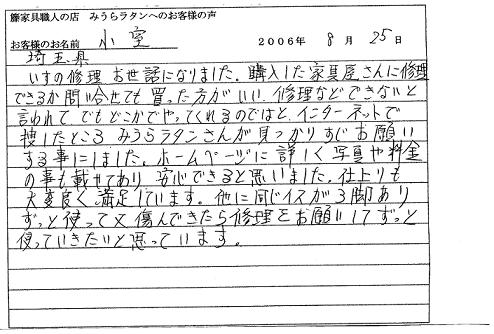 籐家具職人の店 みうらラタンへのお客様の声
お客様のお名前 小室 2006年 8月 25日
埼玉県
いすの修理 お世話になりました。購入した家具屋さんに修理
できるか問い合せても買った方がいい、修理などできないと
言われて、でもどこかでやってくれるのではと、インターネットで
捜したところ みうらラタンさんが見つかりすぐお願い
する事にしました。ホームページに詳しく写真や料金
の事も載せてあり 安心できると思いました。仕上りも
大変良く満足しています。他に同じイスが3脚あり
ずっと使って又傷んできたら修理をお願いしてずっと
使っていきたいと思っています。